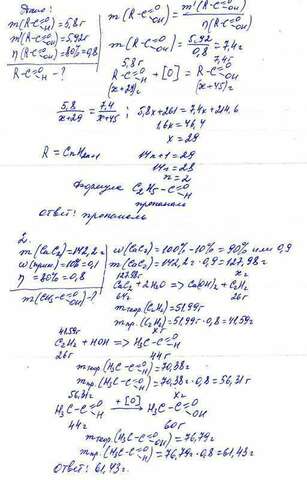 Дано:
m(R-C=O H) = 5,8г
m'(R-C=O OH) = 5,92г
η(R-C=O OH) = 80% = 0,8
R-C=O H - ?
m(R-C=O OH) = m'(R-C=O OH) / η(R-C=O OH)
m(R-C=O OH) = 5,92 / 0,8 = 7,4г
5,8г 7,4г
R-C=O H + [O] = R-C=O OH
(x+29)г (x+45)г
5,8 / x+29 = 7,4 / x+45 ; 5,8x+261 = 7,4x+214,6
1,6x = 46,4
x = 29
R = CnH2n+1 14n+1 = 29
14n = 28
n = 2
Формула C2H5-C=O H
пропаналь
Ответ: пропаналь
2.
m(CaC2) = 142,2г
w(прим) = 10% = 0,1
η = 80% = 0,8
m(CH3-C=O OH) - ?
w(CaC2) = 100% - 10% = 90% или 0,9
m(CaC2) = 142,2г · 0,9 = 127,98г
127,98г xг
CaC2 + 2H2O => Ca(OH)2 + C2H2
64г 26г
m теор.(C2H2) = 51,99г
m пр.(C2H2) = 51,99г · 0,8 = 41,59г
41,59г xг
C2H2 + HOH => H3C-C=O H
26г 44г
m теор.(H3C-C=O H) = 70,38г
m пр.(H3C-C=O H) = 70,38г · 0,8 = 56,31г
56,31г xг
H3C-C=O H + [O] → H3C-C=O OH
44г 60г
m теор.(H3C-C=O OH) = 76,79г
m пр.(H3C-C=O OH) = 76,79г · 0,8 = 61,43г
Ответ: 61,43г.